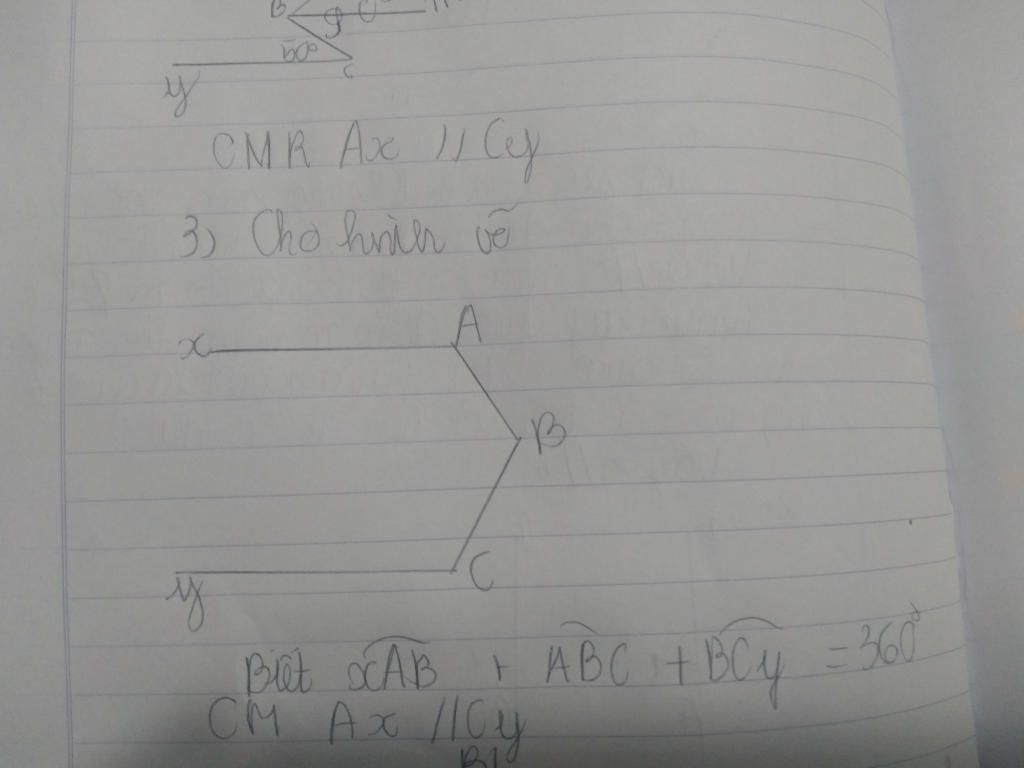 B
50°
y c
CMR Ax // Cy
3) Cho hình vẽ
x A
B
y C
Biết xAB + ABC + BCy = 360°
CM Ax // Cy